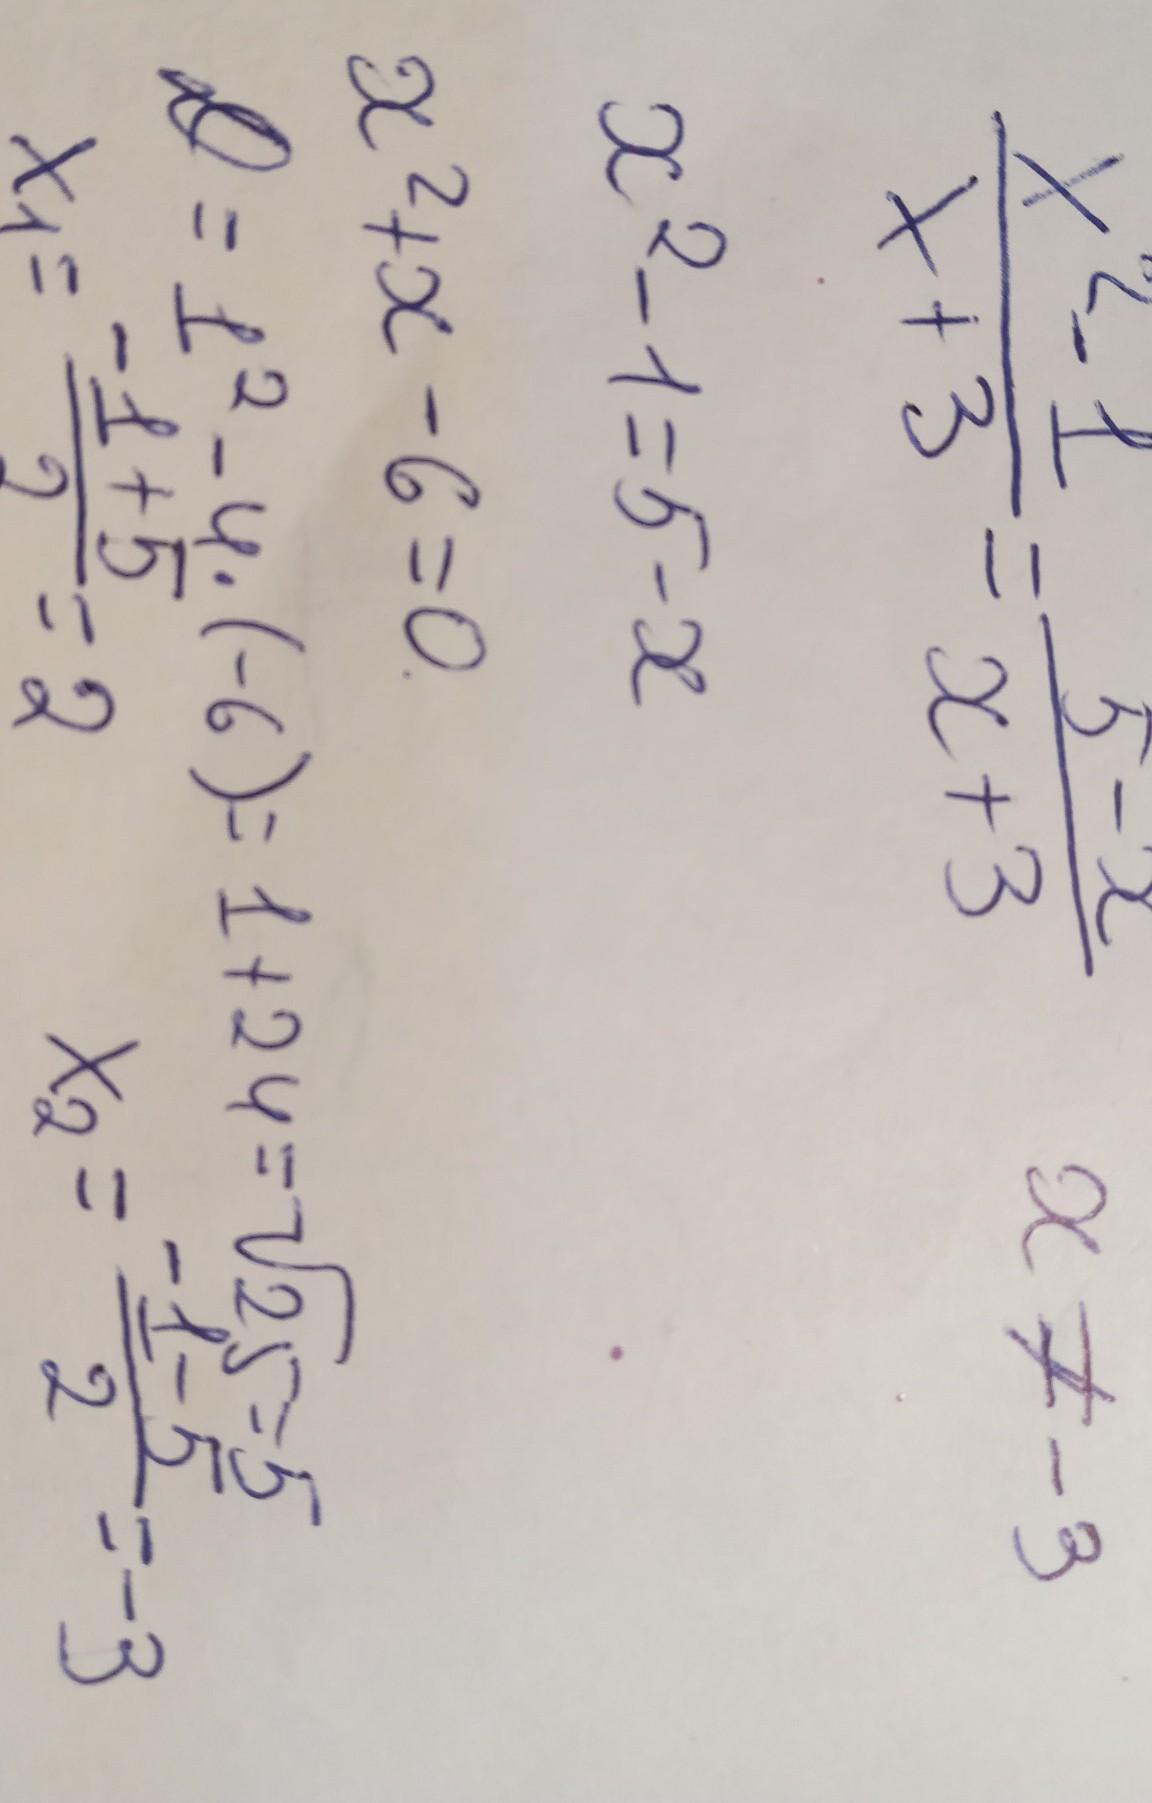 x²-1 / x+3 = 5-x / x+3    x ≠ -3
x²-1=5-x
x²+x-6=0
D=1²-4·(-6)=1+24=√25=5
x₁= -1+5 / 2 =2    x₂= -1-5 / 2 =-3